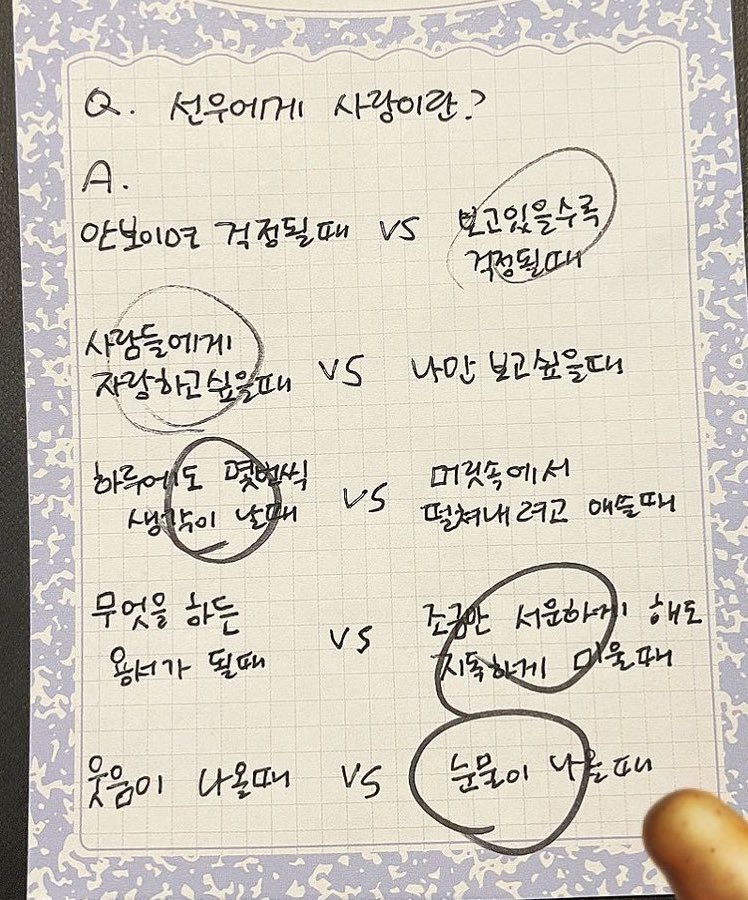 Q. 선우에게 사랑이란?
A.
안보이면 걱정될때 VS 보고있을수록
걱정될때
사람들에게
자랑하고싶을때 VS 나만 보고싶을때
하루에도 몇번씩
생각이 날때 VS 머릿속에서
떨쳐내려고 애쓸때
무엇을 하든
용서가 될때 VS 조금만 서운하게 해도
지독하게 미울때
웃음이 나올때 VS 눈물이 나올때